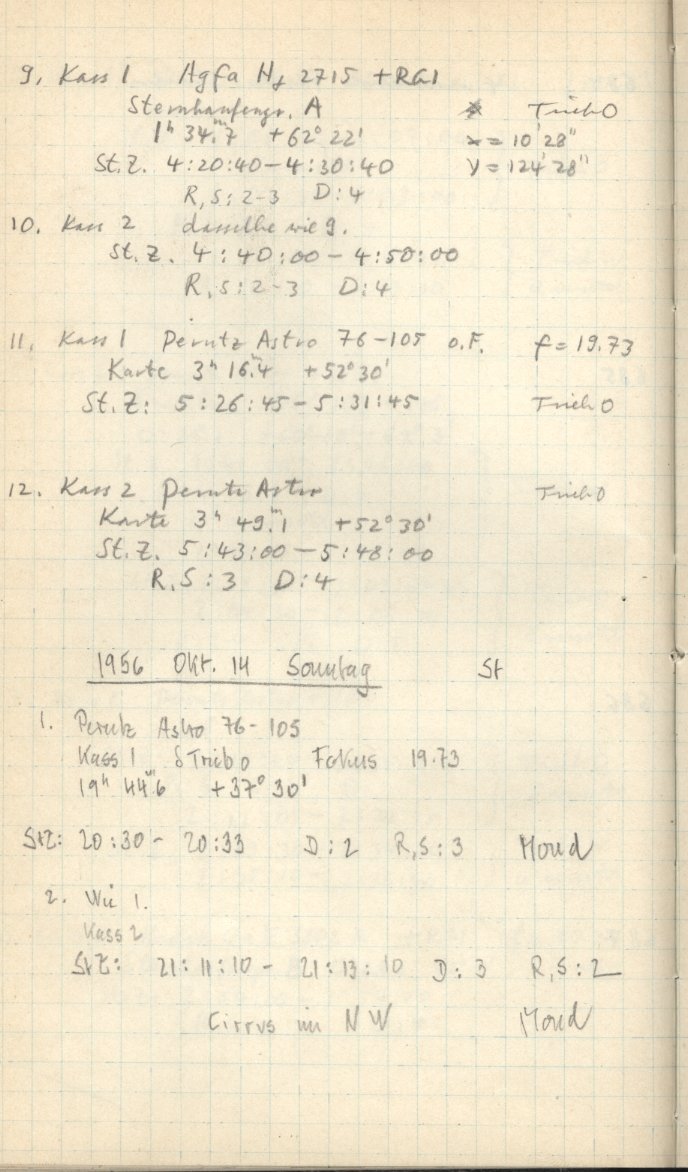 9. Kass 1 Agfa Hα 2715 + RG1
Sternhaufengr. A Trieb 0
1ʰ 34.ᵐ7 +62° 22' x = 10' 28"
St.Z. 4:20:40 – 4:30:40 y = 124' 28"
R,S: 2-3 D: 4
10. Kass 2 dasselbe wie 9.
St.Z. 4:40:00 – 4:50:00
R,S: 2-3 D: 4
11. Kass 1 Perutz Astro 76-105 o.F. f = 19.73
Karte 3ʰ 16.ᵐ4 +52° 30'
St.Z: 5:26:45 – 5:31:45 Trieb 0
12. Kass 2 Perutz Astro Trieb 0
Karte 3ʰ 49.ᵐ1 +52° 30'
St.Z. 5:43:00 – 5:48:00
R,S: 3 D: 4
1956 Okt. 14 Sonntag St
1. Perutz Astro 76-105
Kass 1 δTrieb 0 Fokus 19.73
19ʰ 44.ᵐ6 +37° 30'
StZ: 20:30 - 20:33 D: 2 R,S: 3 Mond
2. Wie 1.
Kass 2
StZ: 21:11:10 - 21:13:10 D: 3 R,S: 2
Cirrus im NW Mond